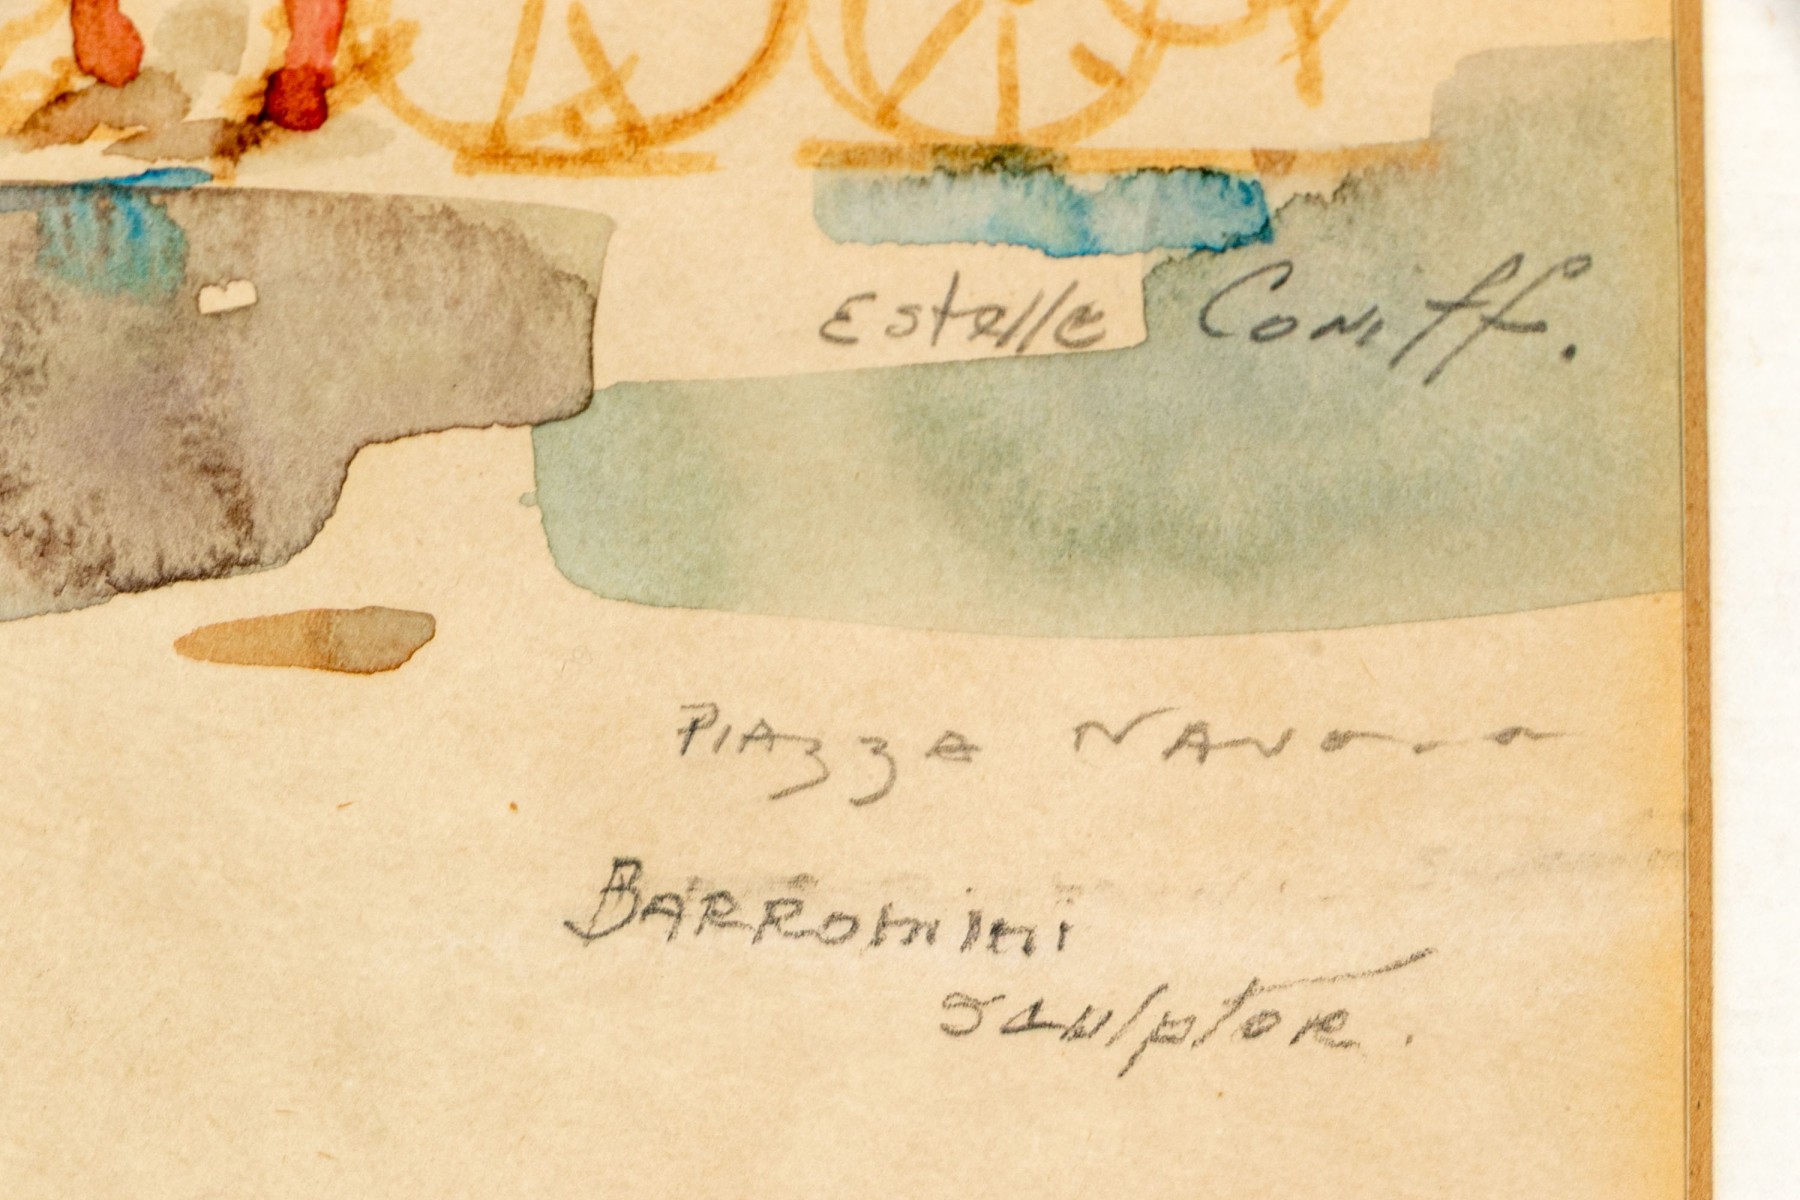 Estelle Coniff.
PIAZZA NAVONA
BARROMINI
Sculptor.